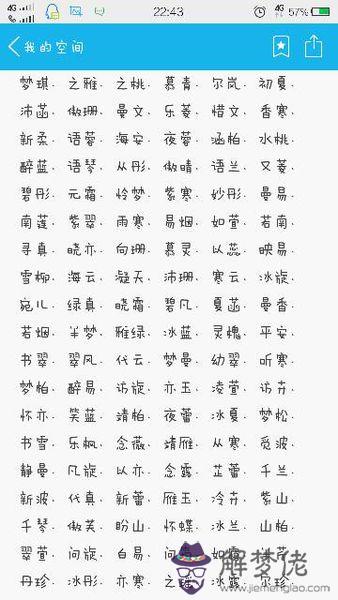 4G 22:43 4G 57%
我的空间
梦琪. 之雅. 之桃. 慕青. 尔岚. 初夏.
沛菡. 傲珊. 曼文. 乐菱. 惜文. 香寒.
新柔. 语蓉. 海安. 夜蓉. 涵柏. 水桃.
醉蓝. 语琴. 从彤. 傲晴. 语兰. 又菱.
碧彤. 元霜. 怜梦. 紫寒. 妙彤. 曼易.
南莲. 紫翠. 雨寒. 易烟. 如萱. 若南.
寻真. 晓亦. 向珊. 慕灵. 以蕊. 映易.
雪柳. 海云. 凝天. 沛珊. 寒云. 冰旋.
宛儿. 绿真. 晓霜. 碧凡. 夏菡. 曼香.
若烟. 半梦. 雅绿. 冰蓝. 灵槐. 平安.
书翠. 翠风. 代云. 梦曼. 幼翠. 听寒.
梦柏. 醉易. 访旋. 亦玉. 凌萱. 访卉.
怀亦. 笑蓝. 靖柏. 夜蕾. 冰夏. 梦松.
书雪. 乐枫. 念薇. 靖雁. 从寒. 觅波.
静曼. 凡旋. 以亦. 念露. 芷蕾. 千兰.
新波. 代真. 新蕾. 雁玉. 冷卉. 紫山.
千琴. 傲芙. 盼山. 怀蝶. 冰兰. 山柏.
翠萱. 问旋. 白易. 问
丹珍. 冰彤. 亦寒. 之 冰露. 尔珍.
解梦佬
www.jiemenglao.com